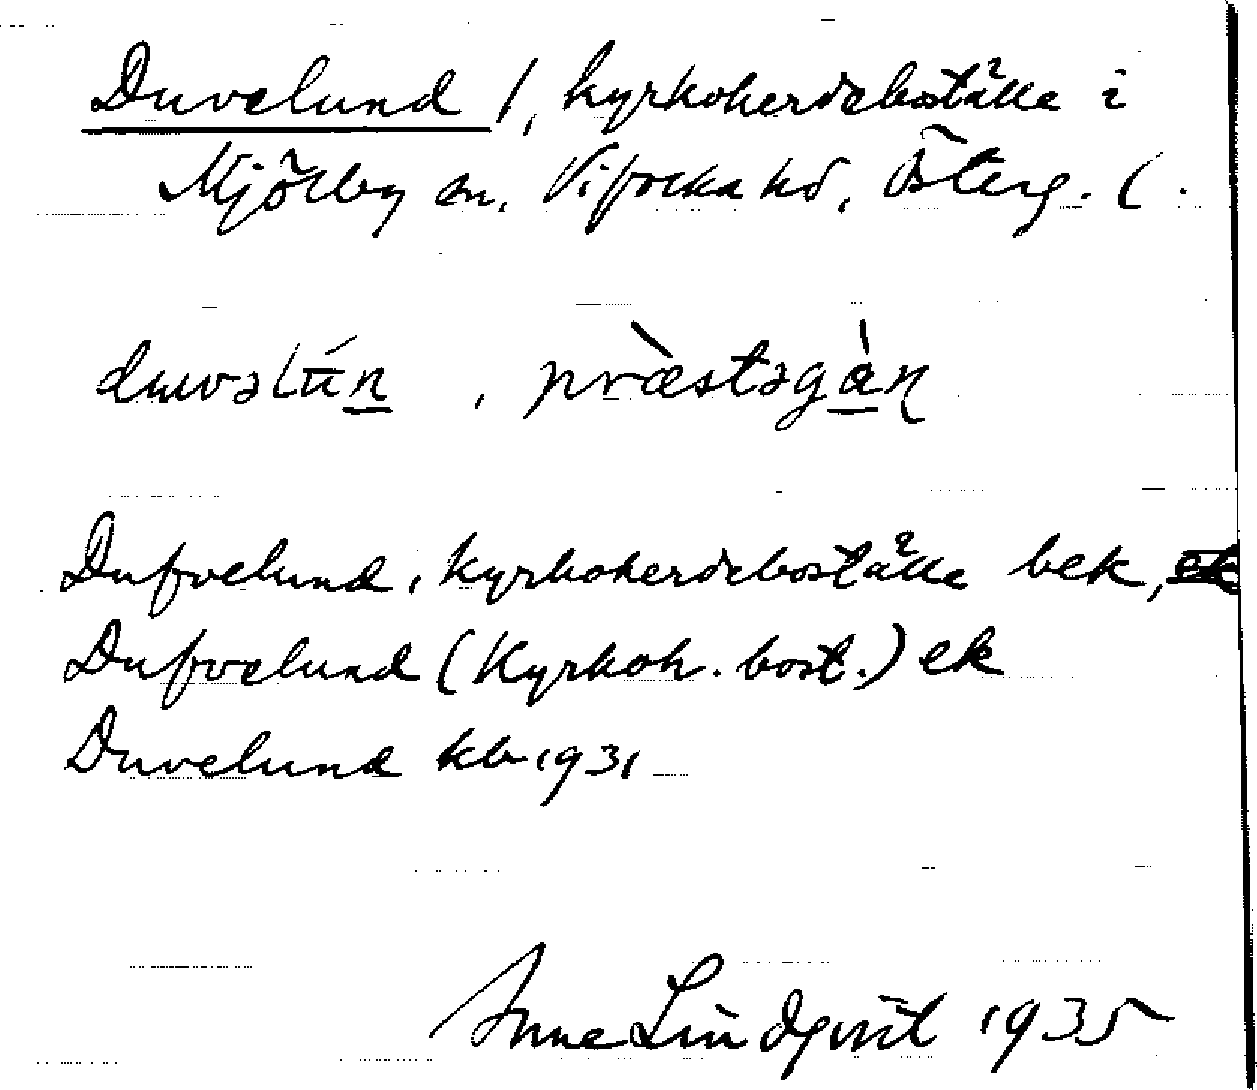 Duvelund /, kyrkoherdeboställe i
Mjölby sn, Vifocka hd, Österg. l.
duvəlún, præ̀stəgàɳ
Dufvelund, kyrkoherdeboställe bek,
Dufvelund (Kyrkoh. bost.) ek
Duvelund kb 1931
Anne Lindqvist 1935